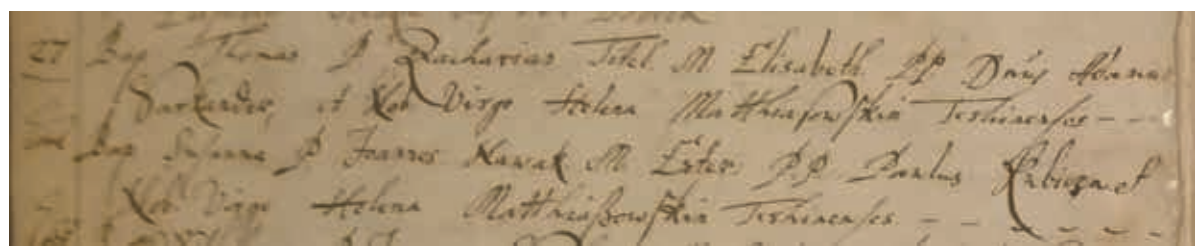 27 Bap Thomas P Zacharias Titel M Elisabeth PP Dnus Joannes
Sarkander, et Nob Virgo Helena Matthiasowskin Teshinenses - -
Bap Susanna P Joannes Nawak M Ester PP Paulus et
Nob Virgo Helena Matthiaßowskin Teshinenses - - - - -